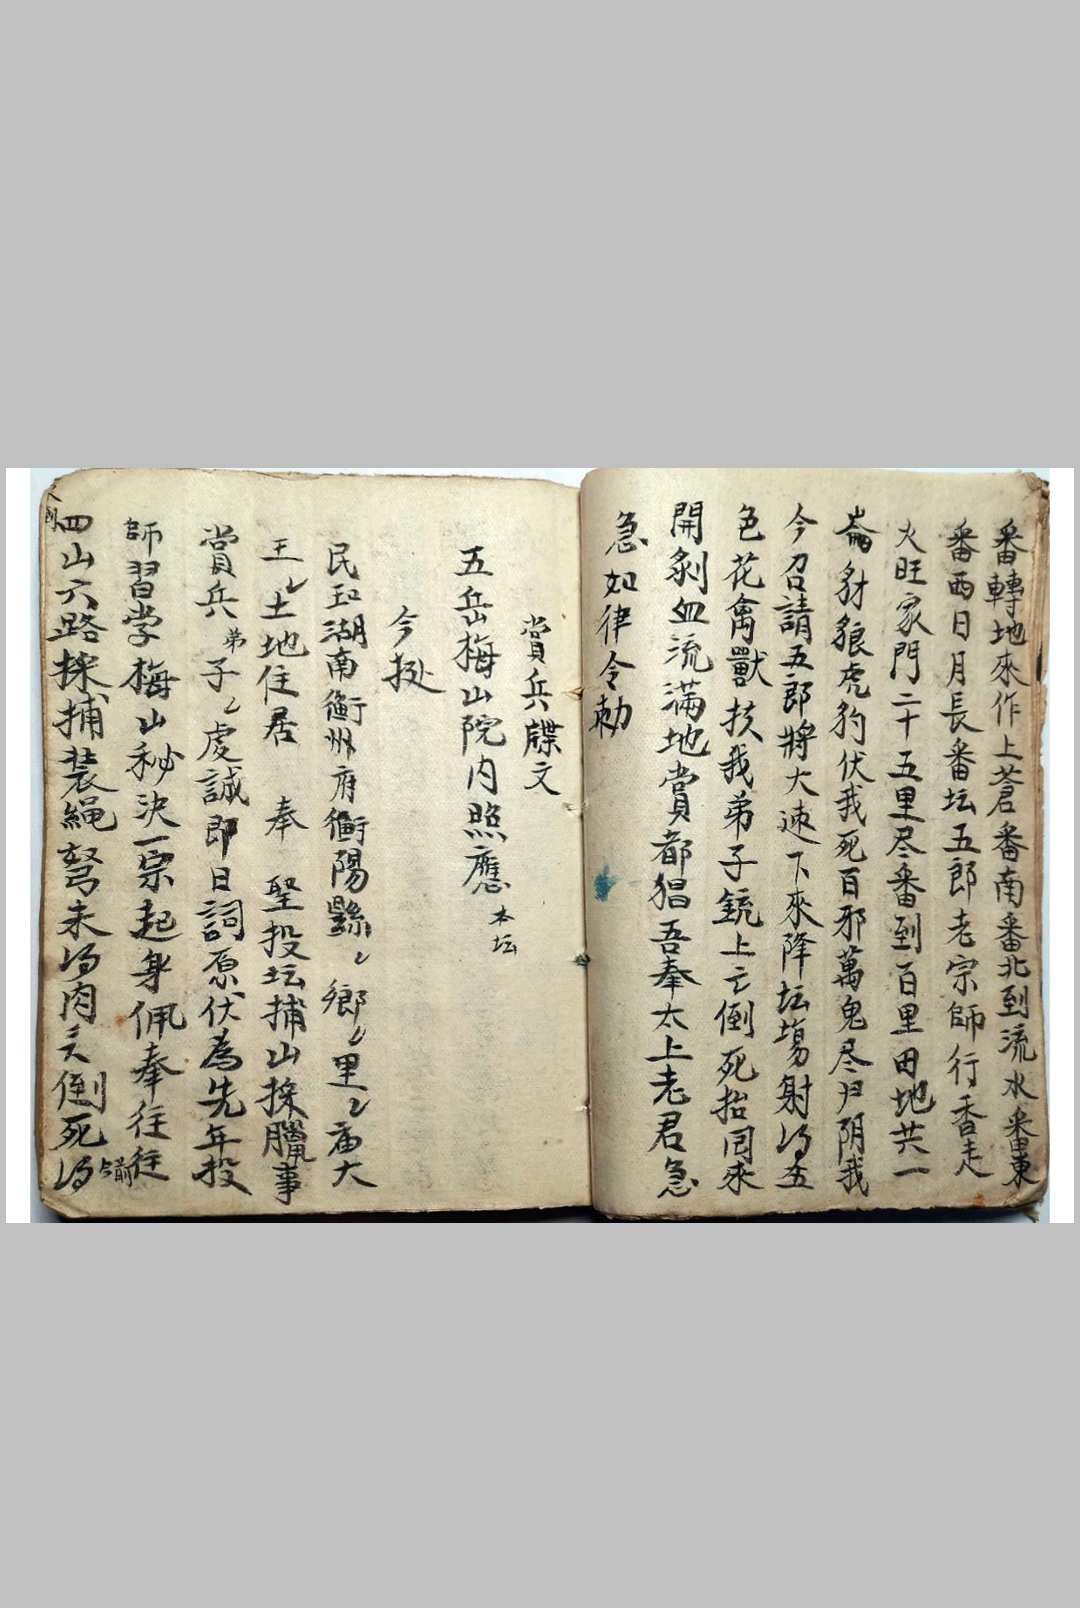 番轉地來作上蒼番南番北到流水番東
番西日月長番坛五郎老宗師行香走
火旺家門二十五里尽番到百里田地共一
崙豺狼虎豹伏我死百邪萬鬼尽归阴我
今召請五郎將大速下來降坛場射得五
色花禽獸扶我弟子銃上亡倒死抬囘來
開剝血流滿地賞都猖吾奉太上老君急
急如律令勅
賞兵牒文
五岳梅山院内照應 本坛
今拠
民國湖南衡州府衡陽縣 鄉 里 庙大
王 土地住居 奉 聖投坛捕山採臘事
賞兵弟子 處誠即日詞原伏為先年投
師習学梅山秘決一宗起身佩奉往往
四山六路採捕装繩弩未得肉 倒死得 今前